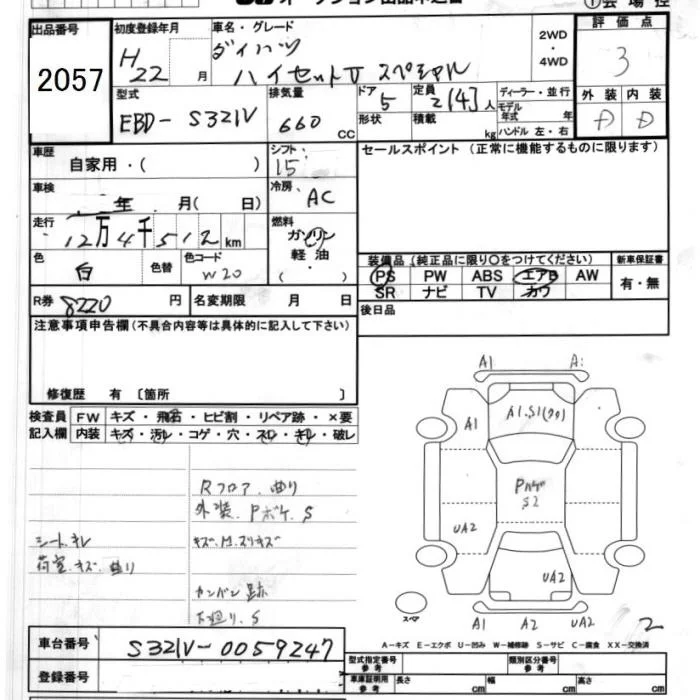 出品番号
2057
初度登録年月
H22 月
車名・グレード
ダイハツ
ハイゼットV スペシャル
2WD
・
4WD
評価点
3
型式
EBD-S321V
排気量
660 CC
ドア
5
形状
定員
2[4]人
積載
kg
ディーラー・並行
モデル年式 年
ハンドル 左・右
外装 内装
D D
車歴
自家用・( )
シフト
I5
セールスポイント（正常に機能するものに限ります）
車検
年 月( 日)
冷房
AC
走行
12万4千512km
燃料
ガソリン
軽油
・
( )
色
白
色替
色コード
W20
装備品（純正品に限り○をつけてください）
新車保証書
PS PW ABS エアB AW
SR ナビ TV カワ
有・無
R券 8220 円
名変期限 月 日
後日品
注意事項申告欄（不具合内容等は具体的に記入して下さい）
修復歴 有 〔箇所 〕
検査員
記入欄
FW キズ・飛石・ヒビ割・リペア跡・×要
内装 キズ・汚レ・コゲ・穴・スレ・キレ・破レ
Rフロア、曲り
外装、Pボケ、S
シート、キレ
キズ、M、スリキズ
荷室、キズ、曲り
カンバン跡
下廻り、S
A1
A1
A1.S1
Pハゲ
S2
UA2
UA2
スペア
A1 A2 UA2
2
A－キズ E－エクボ U－凹み W－補修跡 S－サビ C－腐食 XX－交換済
車台番号
S321V-0059247
登録番号
型式指定番号
参考
類別区分番号
参考
車庫証明用
参考
長さ cm
幅 cm
高さ cm